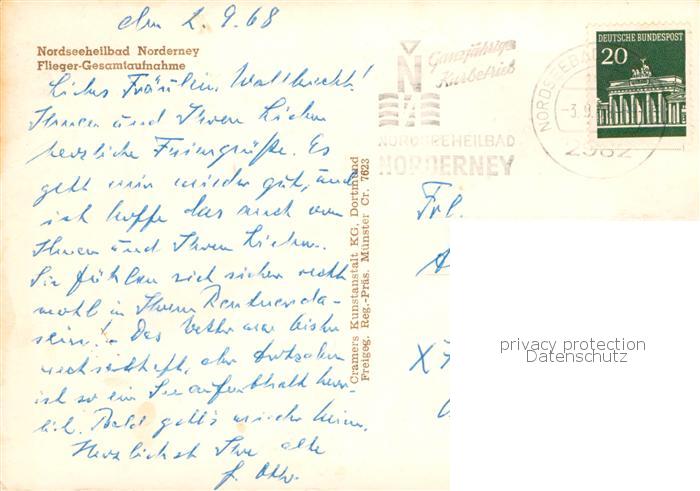 den 2.9.68
Nordseeheilbad Norderney
Flieger-Gesamtaufnahme
Liebes Fräulein Waltknecht!
Ihnen und Ihren Lieben
herzliche Feriengrüße. Es
geht mir wieder gut, und
ich hoffe das auch von
Ihnen und Ihren Lieben.
Sie fühlen sich sicher recht
wohl in Ihrem Rentnerda-
sein! Das Wetter war bisher
wechselhaft, aber trotzdem
ist so ein Seeaufenthalt herr-
lich. Bald geht's wieder heim.
Herzlichst Ihre alte
f. Otto.
Cramers Kunstanstalt KG, Dortmund
Freigeg. Reg.-Präs. Münster Cr. 7623
Ganzjähriger
Kurbetrieb
N
NORDSEEHEILBAD
NORDERNEY
NORDSEEBAD
-3.9.
2982
DEUTSCHE BUNDESPOST
20
Frl.
A
X7
privacy protection
Datenschutz